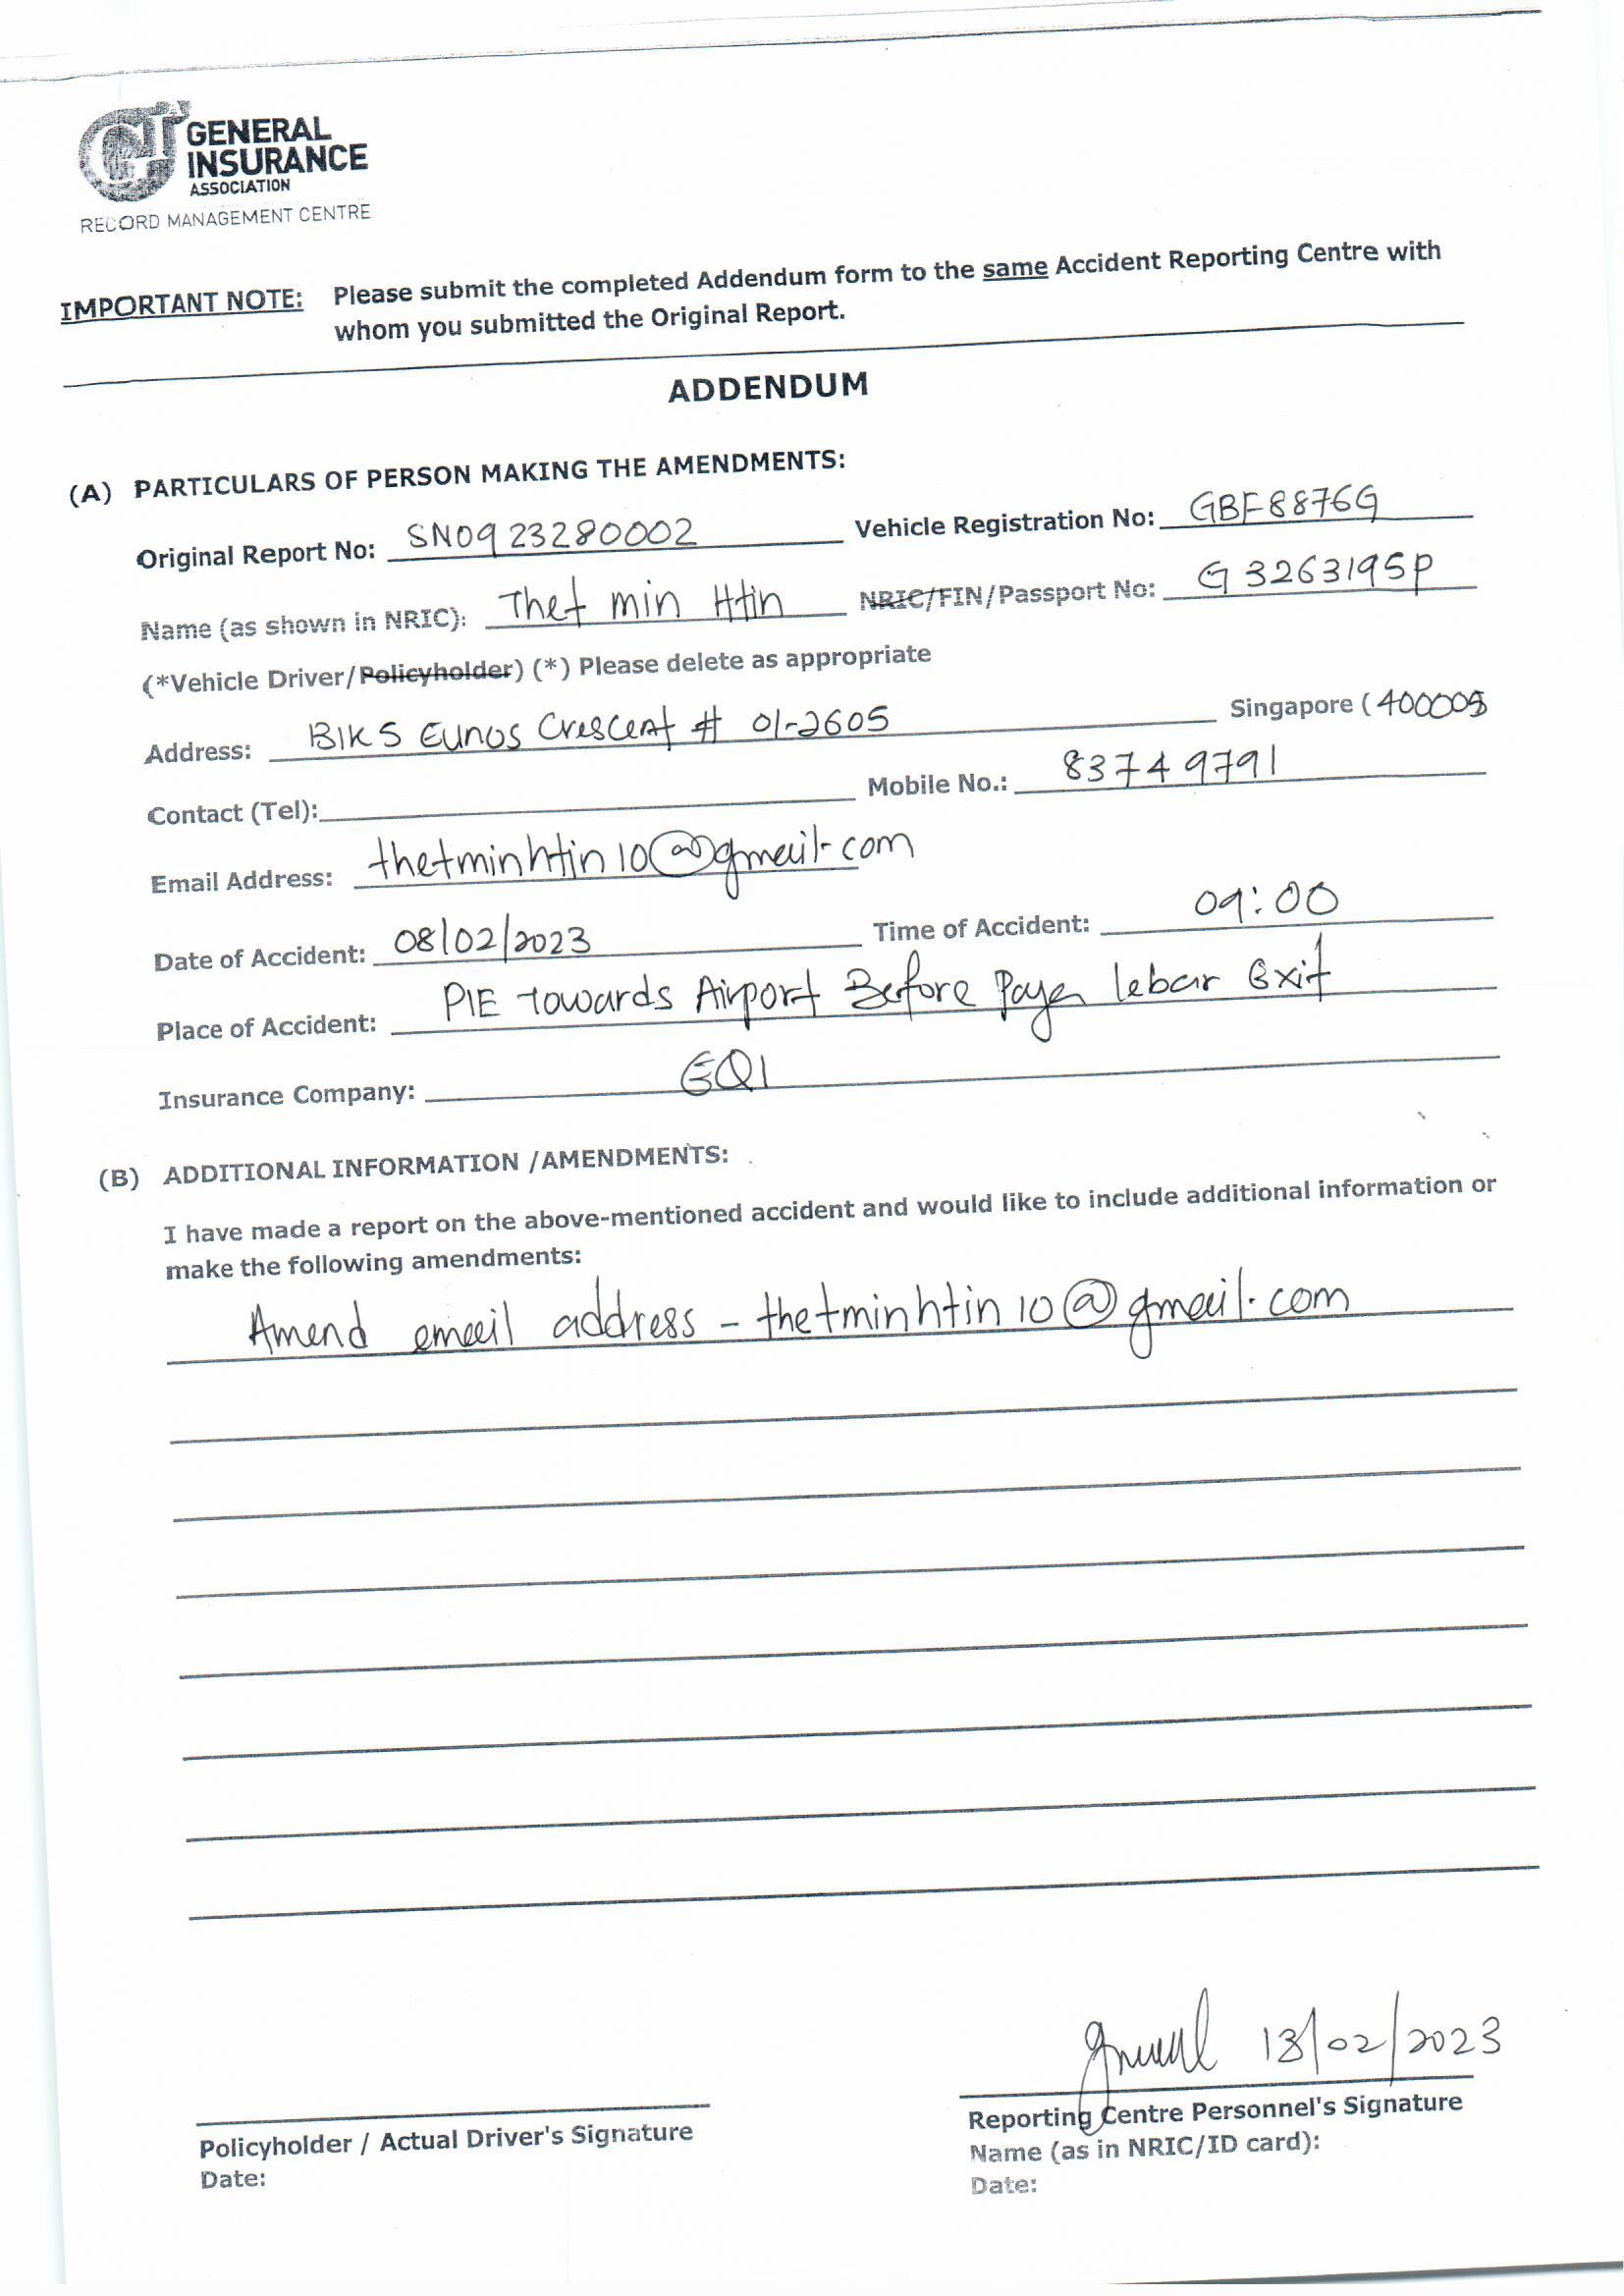 GIA GENERAL
INSURANCE
ASSOCIATION
RECORD MANAGEMENT CENTRE
IMPORTANT NOTE: Please submit the completed Addendum form to the same Accident Reporting Centre with
whom you submitted the Original Report.
ADDENDUM
(A) PARTICULARS OF PERSON MAKING THE AMENDMENTS:
Original Report No: SN0923280002 Vehicle Registration No: GBF8876G
Name (as shown in NRIC): Thet min Htin NRIC/FIN/Passport No: G3263195P
(*Vehicle Driver/Policyholder) (*) Please delete as appropriate
Address: Blk 5 Eunos Crescent # 01-2605 Singapore (400005
Contact (Tel): Mobile No.: 83749791
Email Address: thetminhtin10@gmail.com
Date of Accident: 08/02/2023 Time of Accident: 09:00
Place of Accident: PIE towards Airport Before Paya lebar Exit
Insurance Company: EQI
(B) ADDITIONAL INFORMATION /AMENDMENTS:
I have made a report on the above-mentioned accident and would like to include additional information or
make the following amendments:
Amend email address - thetminhtin10@gmail.com
13/02/2023
Policyholder / Actual Driver's Signature Reporting Centre Personnel's Signature
Date: Name (as in NRIC/ID card):
Date: